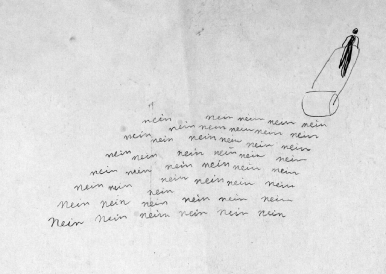 nein nein nein nein nein
nein nein nein nein nein nein
nein nein nein nein nein
nein nein nein nein nein nein
nein nein nein nein nein nein
nein nein nein nein nein nein
nein
nein nein nein nein nein nein
Nein nein nein nein nein nein